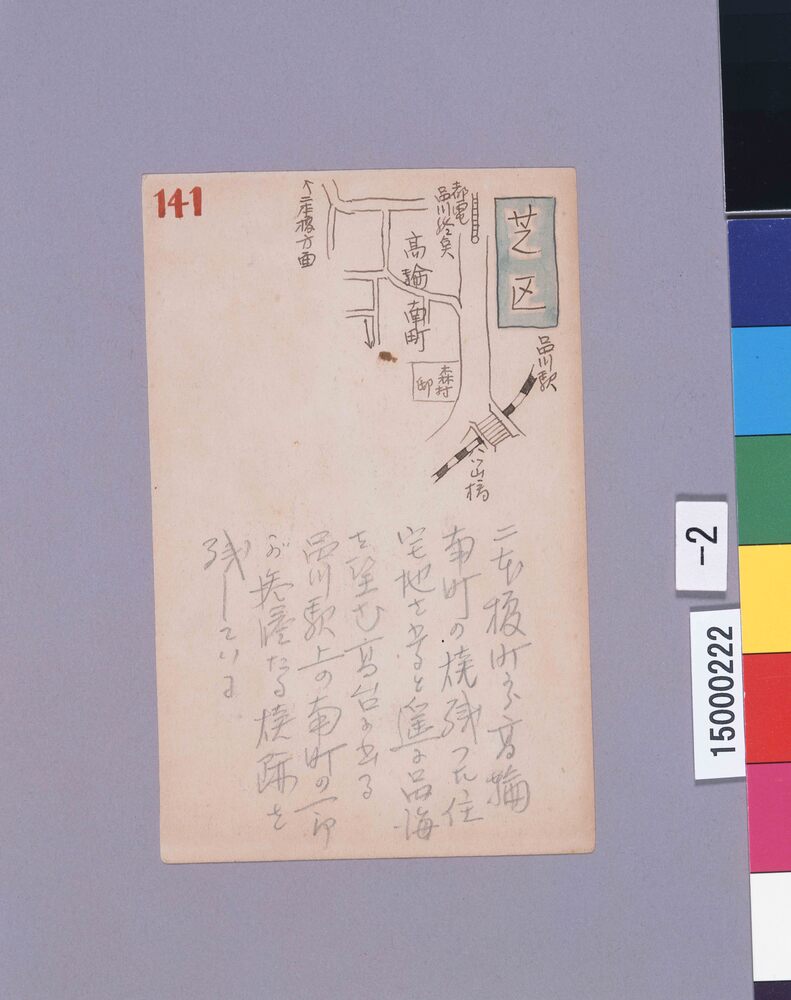 141
芝区
都電
品川終点
↑二本榎方面
高輪南町
森村
邸
品川駅
八ツ山橋
二本榎町から高輪
南町の焼残つた住
宅地を出ると遥に品海
を望む高台に出る
品川駅上の南町の一部
が荒涼たる焼跡を
残している
-2
15000222